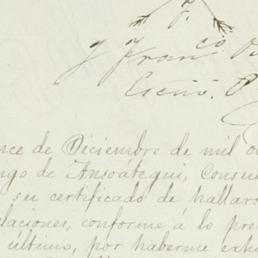 y Fran.co
Escno. P
nce de Diciembre de mil o
ngo de Ansoátegui, Consu
su certificado de hallars
laciones, conforme á lo pre
ultimo, por haberme exhi